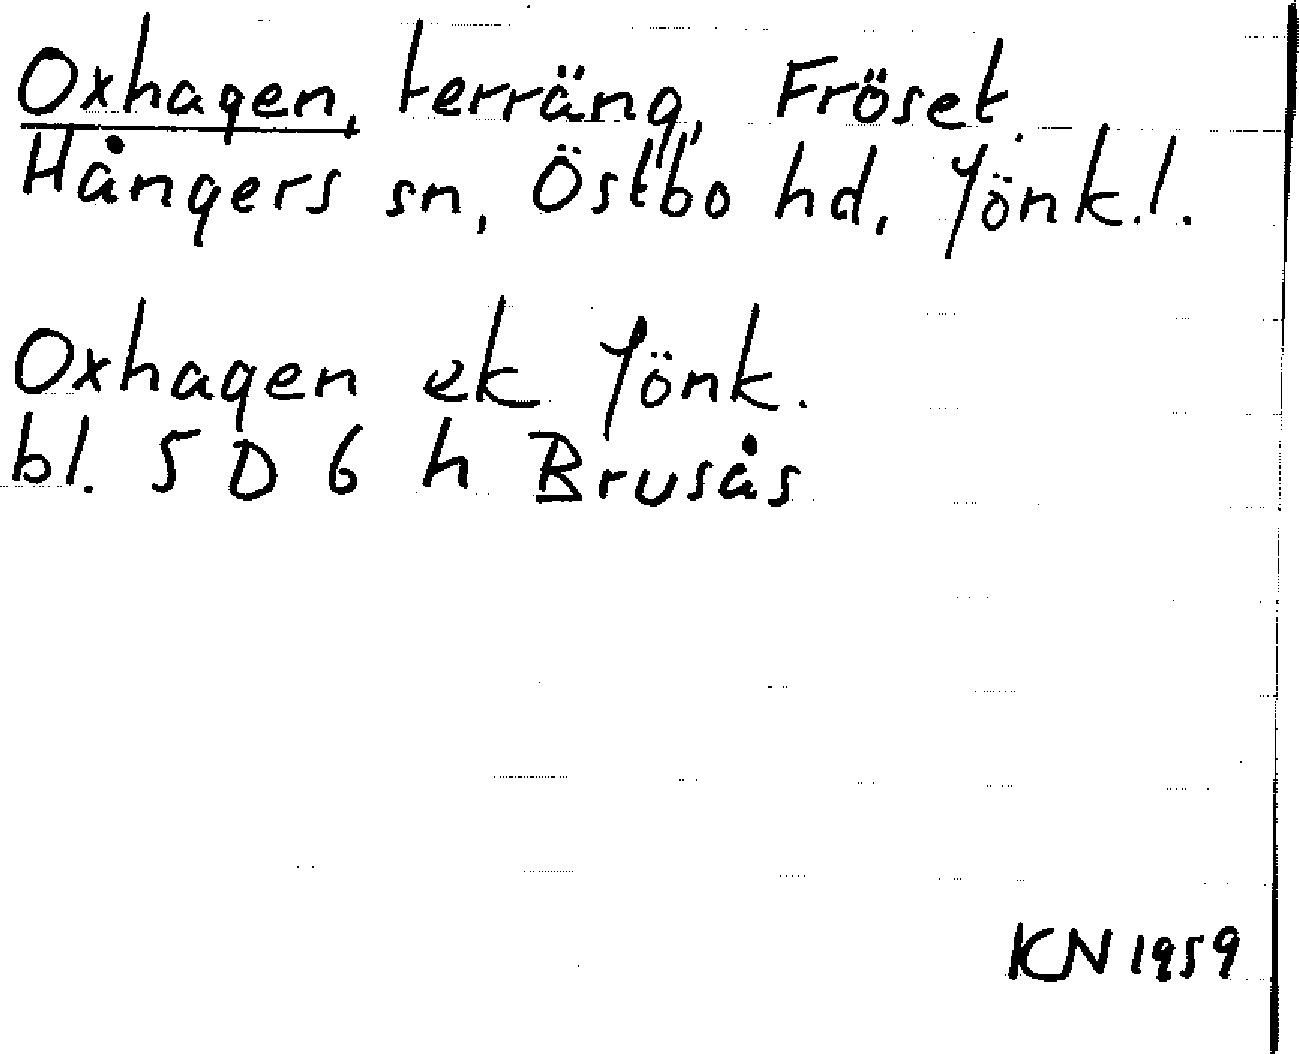 Oxhagen, terräng, Fröset.
Hångers sn, Östbo hd, Jönk.l.
Oxhagen ek Jönk.
bl. 5 D 6 h Brusås
KN 1959